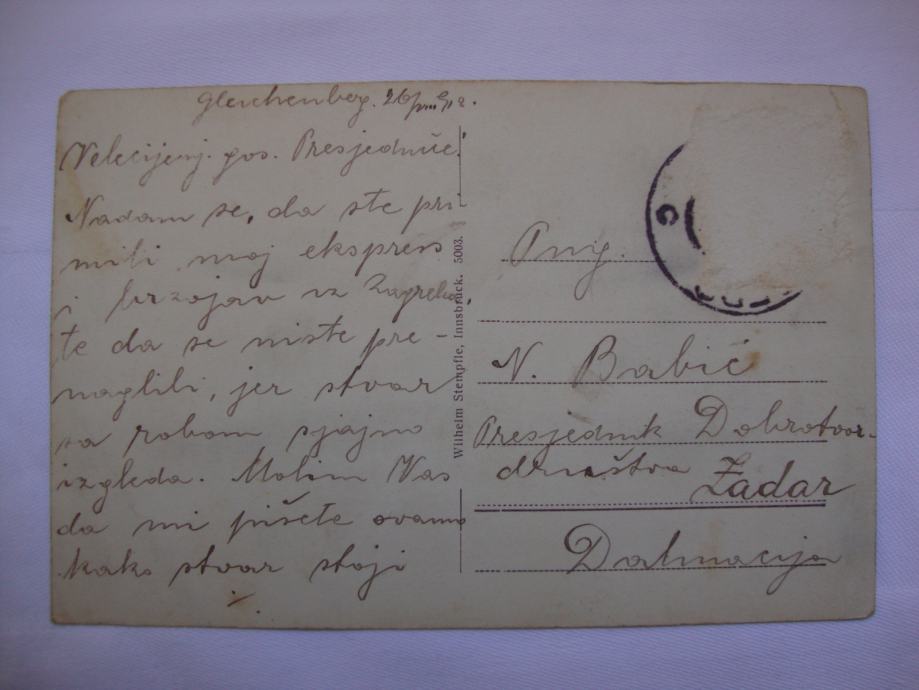 Gleichenberg. 26/
Velecijenj. gos. Presjedniče!
Nadam se, da ste pri-
mili moj ekspress
i brzojav iz Zagreba,
te da se niste pre-
naglili, jer stvar
sa robom sjajno
izgleda. Molim Vas
da mi pišete ovamo
kako stvar stoji
Wilhelm Stempfle, Innsbruck. 5003.
N. Babić
Presjednik Dobrotvor.
društva Zadar
Dalmacija